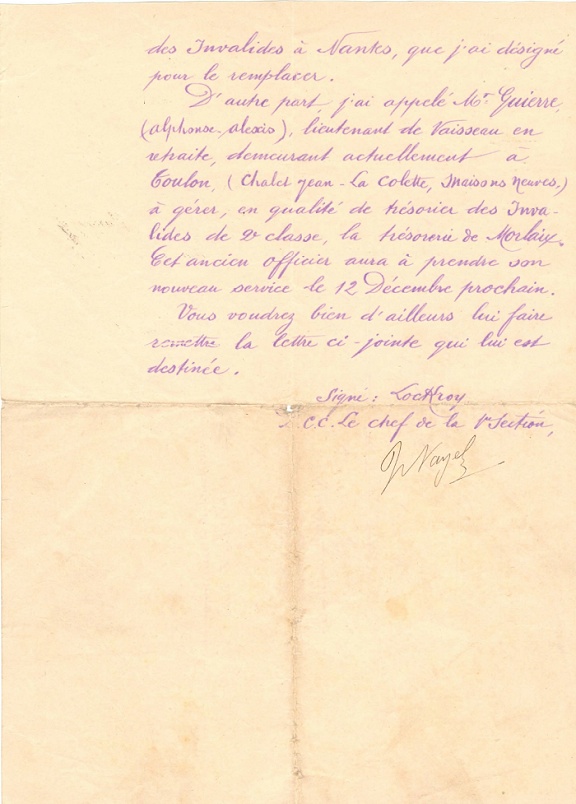 des Invalides à Nantes, que j'ai désigné
pour le remplacer.
D'autre part, j'ai appelé Mr Guierre,
(alphonse, alexis), lieutenant de Vaisseau en
retraite, demeurant actuellement à
Toulon, (Chalet Jean-La Colette, Maisons Neuves,)
à gérer, en qualité de trésorier des Inva-
lides de 2e classe, la trésorerie de Morlaix.
Cet ancien officier aura à prendre son
nouveau service le 12 Décembre prochain.
Vous voudrez bien d'ailleurs lui faire
remettre la lettre ci-jointe qui lui est
destinée.
Signé: Lockroy
C.C. Le chef de la 1re Section,